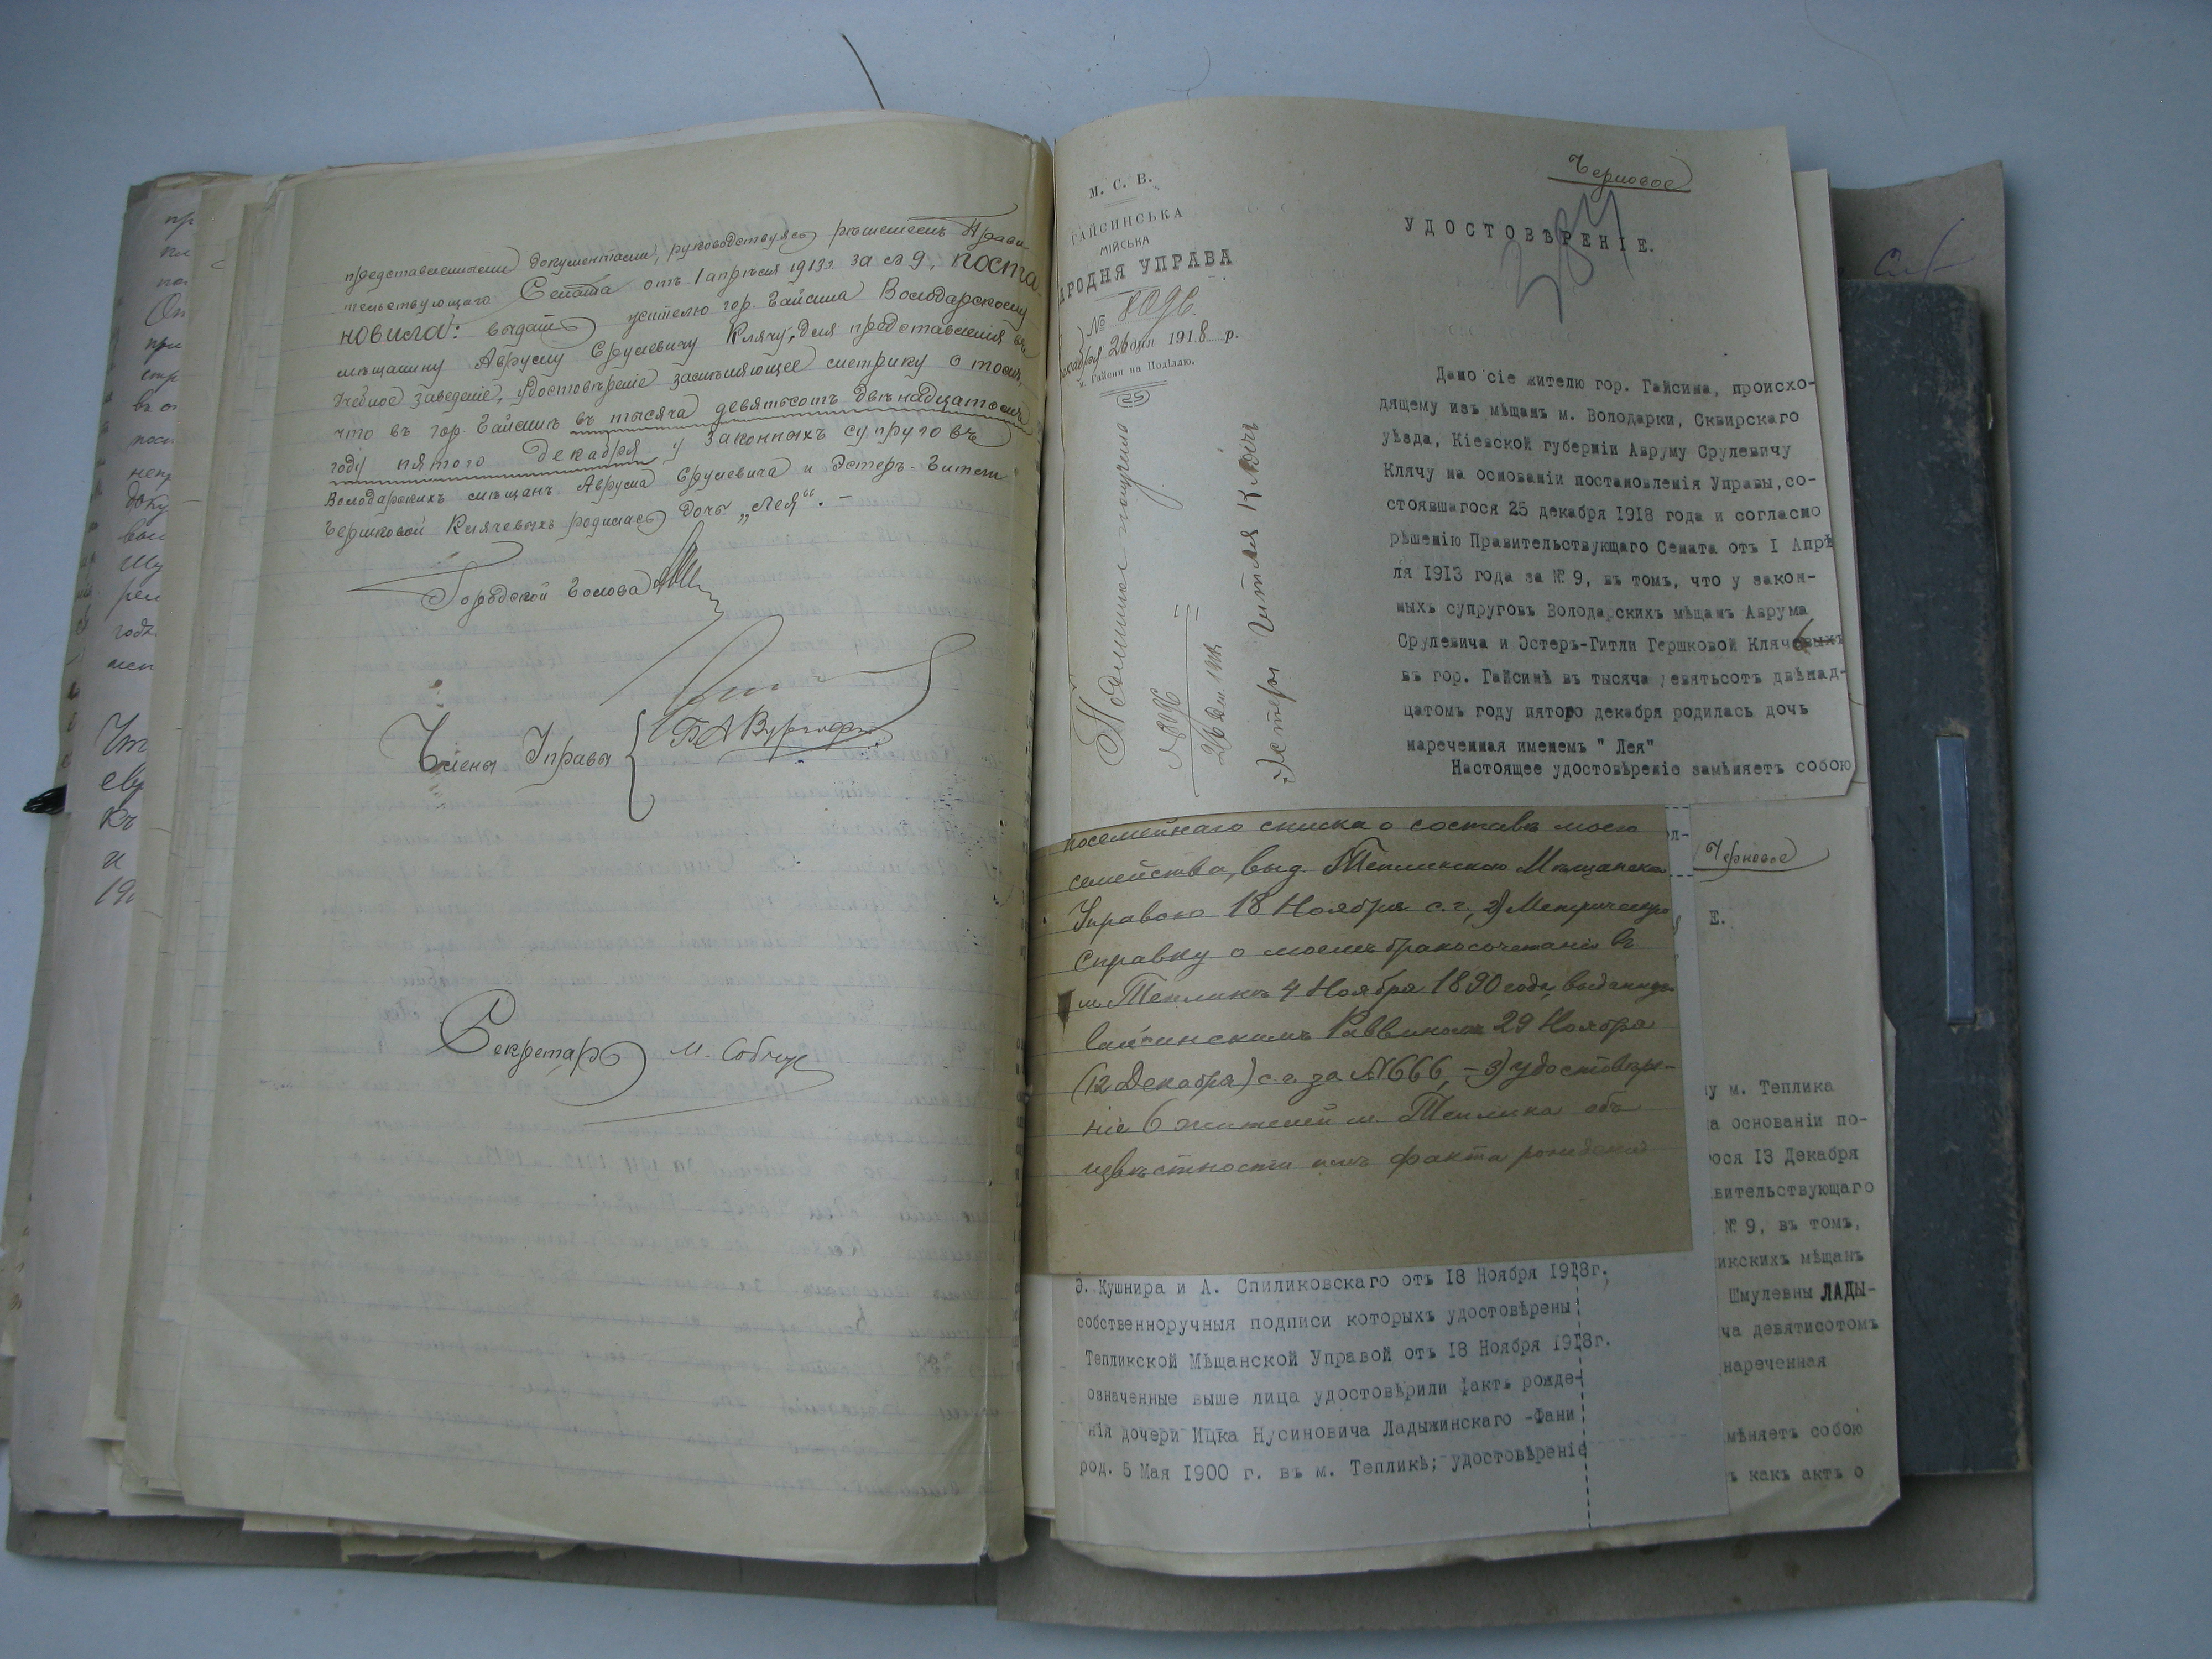 представленными документами, руководствуясь рѣшеніемъ Прави-
тельствующаго Сената отъ 1 апрѣля 1913 г. за № 9, поста-
новила: выдать жителю гор. Гайсина Володарскому
мѣщанину Авруму Срулевичу Клячу, для представленія въ
учебное заведеніе, удостовѣреніе замѣняющее метрику о томъ,
что въ гор. Гайсинѣ въ тысяча девятьсотъ двѣнадцатомъ
году пятого декабря у законныхъ супруговъ
Володарскихъ мѣщанъ Аврума Срулевича и Эстеръ-Гитли
Гершковой Клячевыхъ родилась дочь „Лея“. –
Городской Голова
Члены Управы
Секретарь
М. С. В.
ГАЙСИНСЬКА
МІЙСЬКА
АРОДНЯ УПРАВА
№ 8096
декабря 26 дня 1918 р.
м. Гайсин на Поділлю.
25
Подлинное получила
№ 8096
26 дек. 1918
Эстеръ Гитля Клячъ
Черновое
УДОСТОВѢРЕНІЕ.
Дано сіе жителю гор. Гайсина, происхо-
дящему изъ мѣщанъ м. Володарки, Сквирскаго
уѣзда, Кіевской губерніи Авруму Срулевичу
Клячу на основаніи постановленія Управы, со-
стоявшагося 25 декабря 1918 года и согласно
рѣшенію Правительствующаго Сената отъ I Апрѣ
ля 1913 года за № 9, въ томъ, что у закон-
ныхъ супруговъ Володарскихъ мѣщанъ Аврума
Срулевича и Эстеръ-Гитли Гершковой Клячевыхъ
въ гор. Гайсинѣ въ тысяча девятьсотъ двѣнад-
цатомъ году пятого декабря родилась дочь
нареченная именемъ " Лея"
Настоящее удостовѣреніе замѣняетъ собою
посемейнаго списка о составѣ моего
семейства, выд. Тепликскою Мѣщанскою
Управою 18 Ноября с.г., 2) Метрическую
справку о моемъ бракосочетаніи въ
м. Тепликѣ 4 Ноября 1890 года, выданную
Гайсинскимъ Раввиномъ 29 Ноября
(12 Декабря) с.г. за № 666, – 3) удостовѣре-
ніе 6 жителей м. Теплика объ
извѣстности имъ факта рожденія
Э. Кушнира и А. Спиликовскаго отъ 18 Ноября 1918г.
собственноручныя подписи которыхъ удостовѣрены
Тепликской Мѣщанской Управой отъ 18 Ноября 1918г.
означенные выше лица удостовѣрили фактъ рожде-
нія дочери Ицка Нусиновича Ладыжинскаго -Фани
род. 5 Мая 1900 г. въ м. Тепликѣ; удостовѣреніе
Черновое
Е.
у м. Теплика
а основаніи по-
ося 13 Декабря
вительствующаго
№ 9, въ томъ,
икскихъ мѣщанъ
Шмулевны ЛАДЫ-
ча девятисотомъ
нареченная
мѣняетъ собою
ъ какъ актъ о